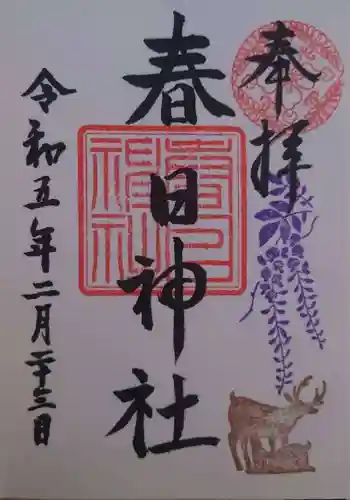 奉拝
春日神社
令和五年二月二十三日
春日
神社